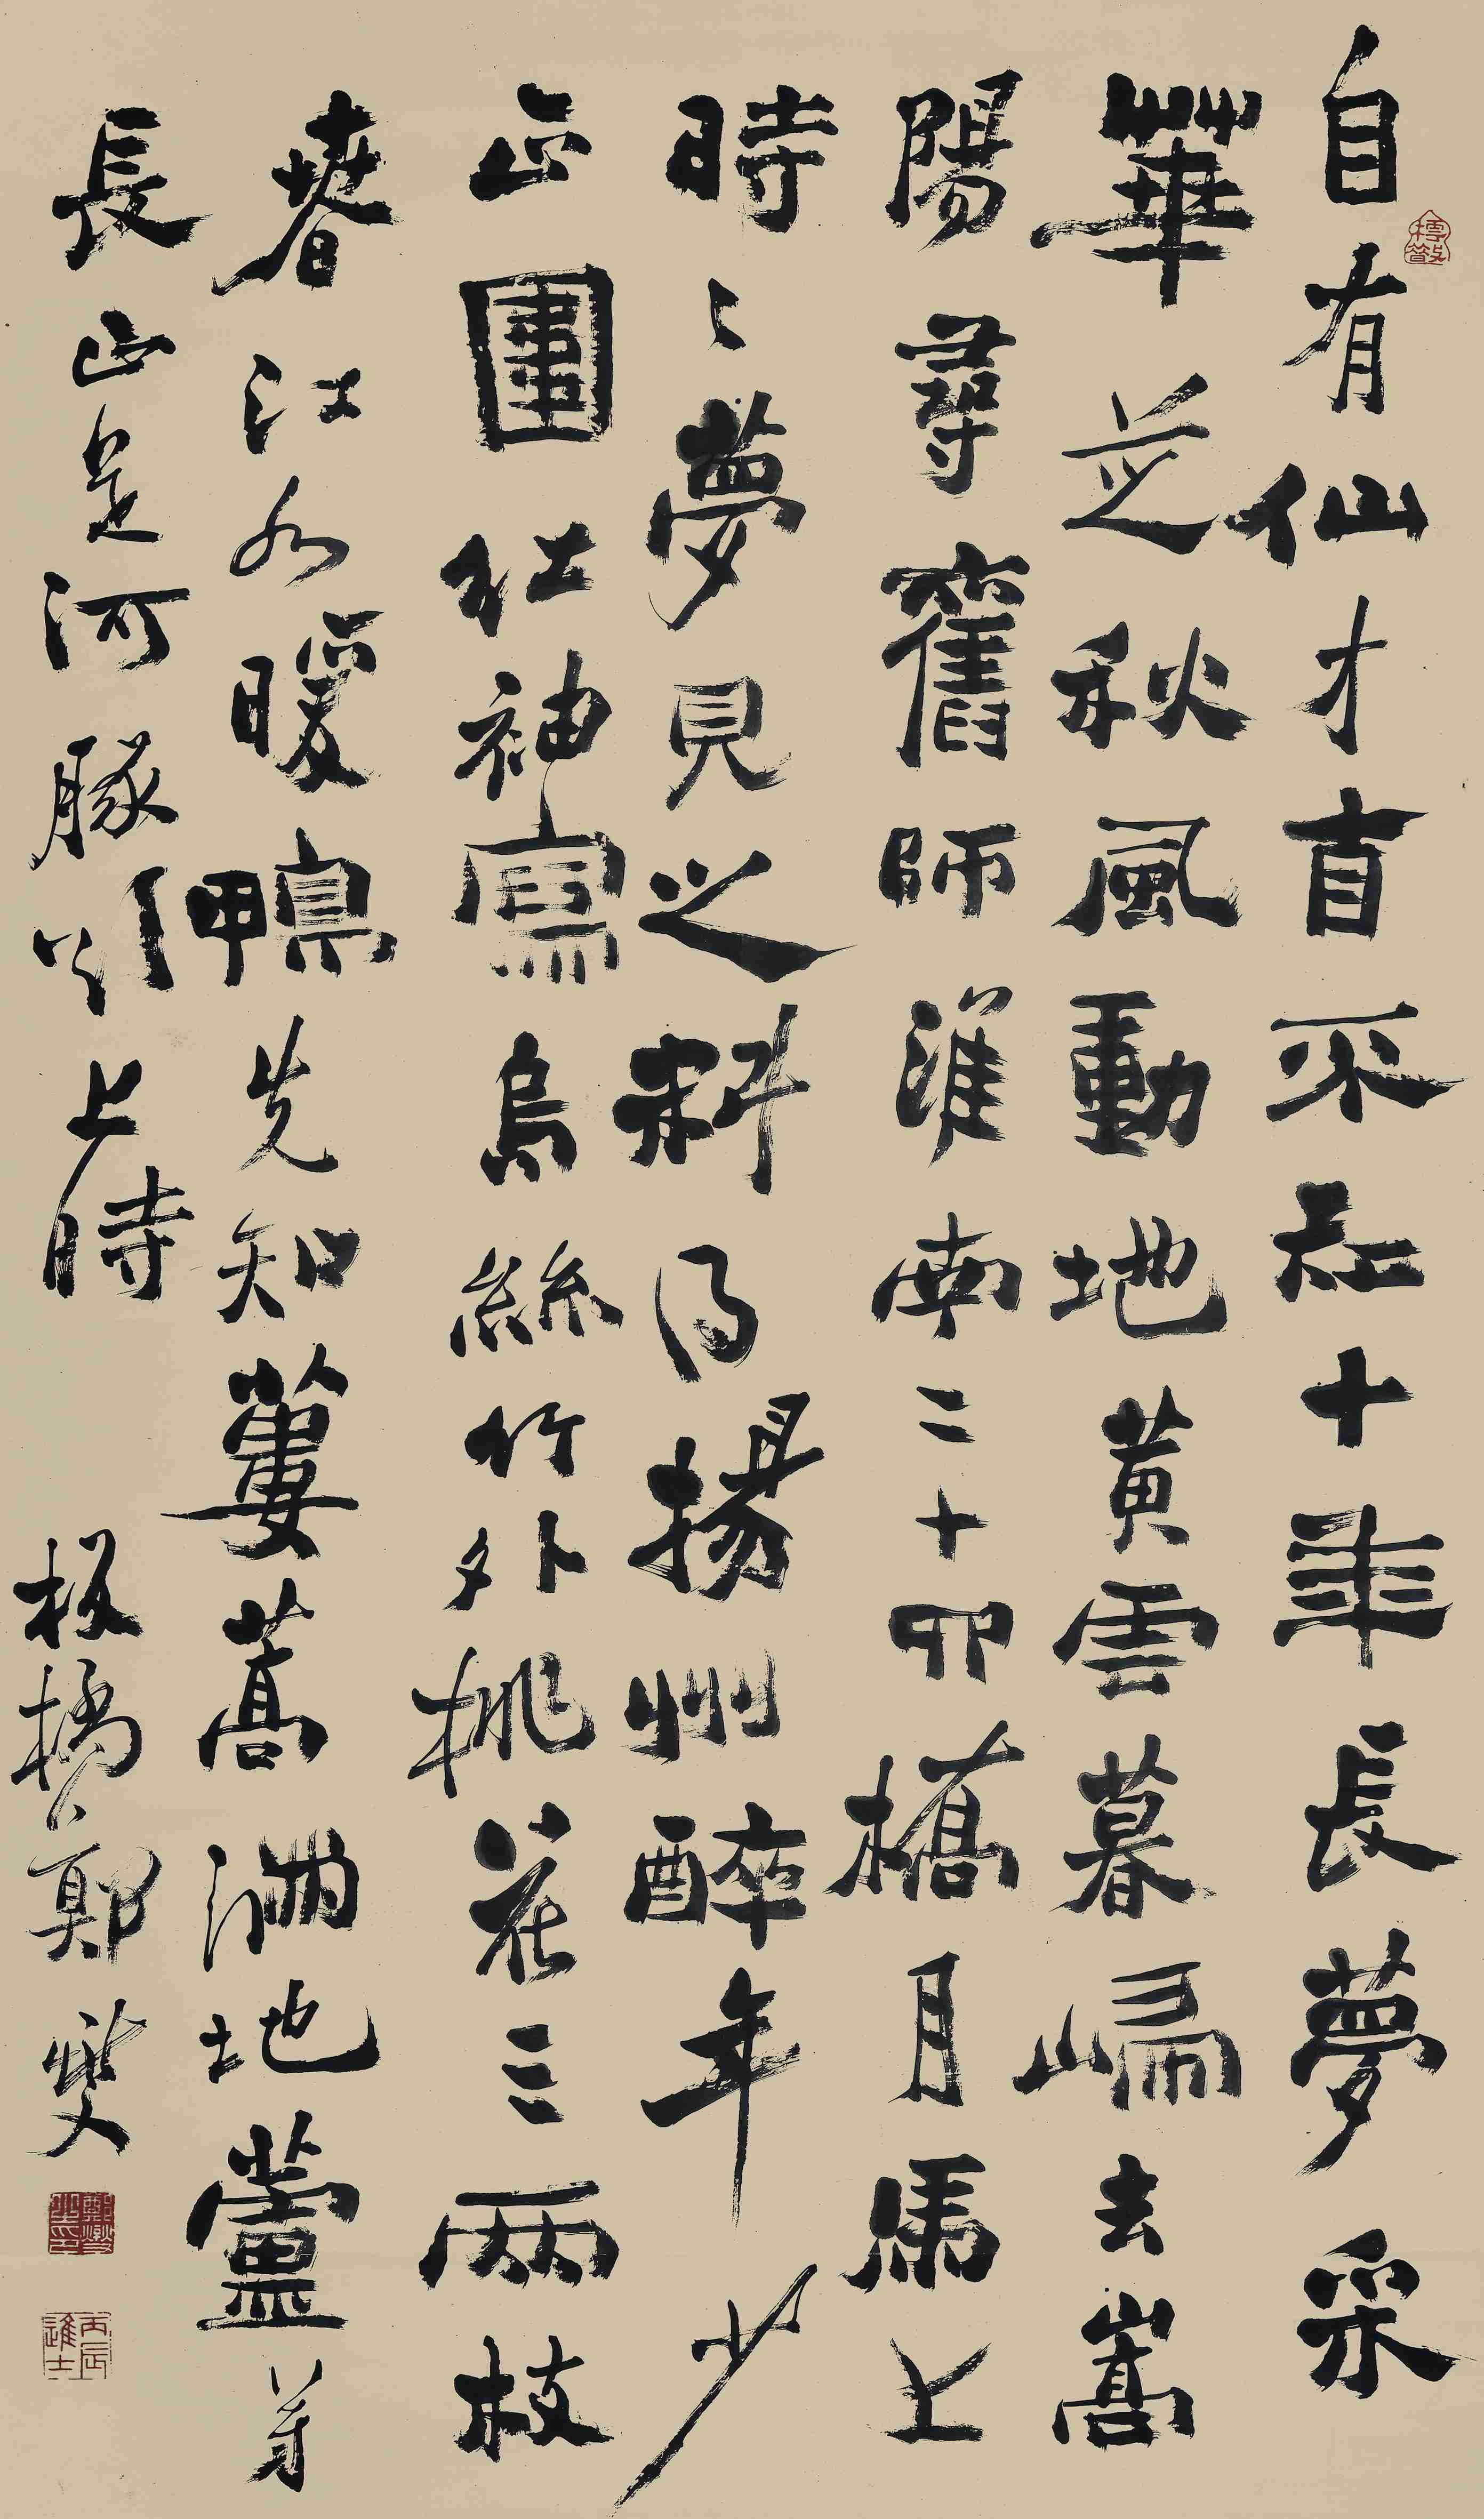 自有仙才自不知十年長夢采
華芝秋風動地黃雲暮歸去嵩
陽尋舊師淮南二十四橋月馬上
時〻夢見之料得揚州醉年少
正圍紅袖寫烏絲竹外桃花三兩枝
春江水暖鴨先知蔞蒿滿地蘆芽
長正是河豚欲上時 板橋鄭燮
鄭燮之印
丙辰進士